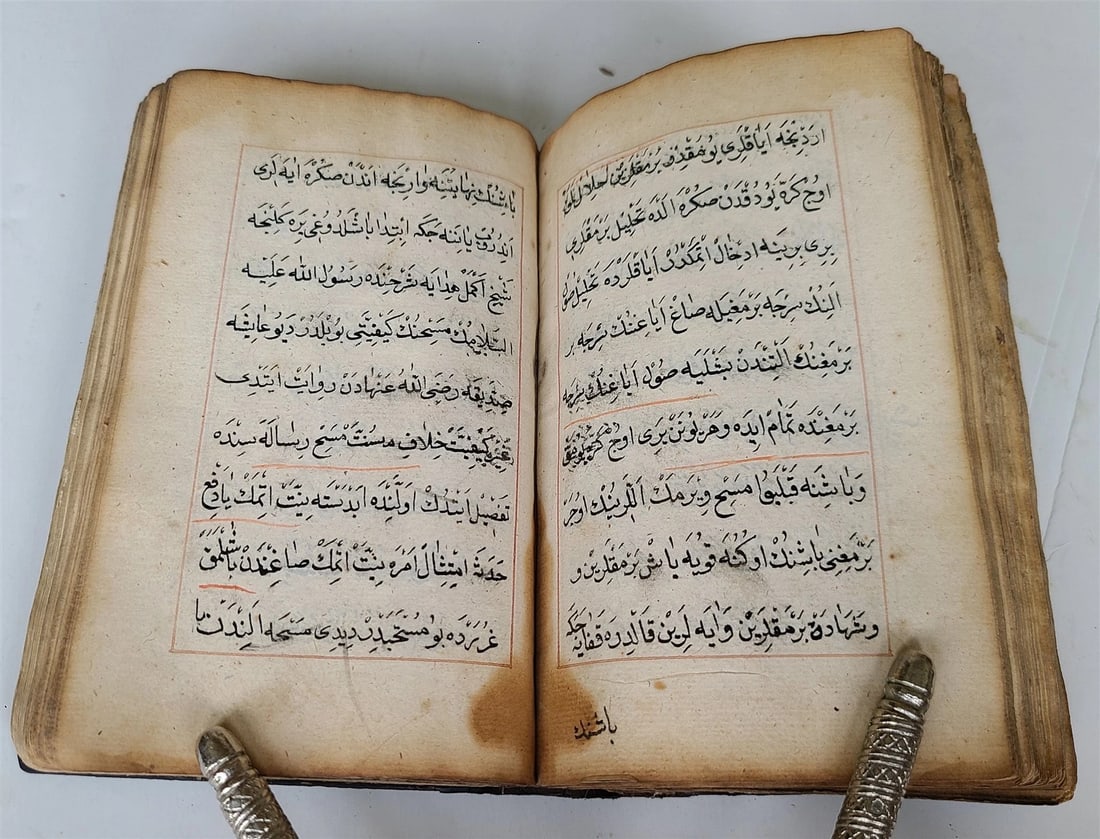 اردنجه اياقلرى يومقدن برمقلرين تخليل قلمق
اوچ كره يودقدن صكره الده تخليل برمقلرى
برى برينه ادخال اتمكدر اياقلرده تخليل صول
النك سرجه برمغيله صاغ اياغنك سرجه بر
برمغنك التندن بشليه صول اياغنك سرجه
برمغنده تمام ايده وهر يونن يرى اوچ كره يومق
وباشنه قپليو مسح ويرمك اللرينك اوچر
برمغنى باشنك اوكنه قويه باش برمقلرين و
وشهادت برمقلرين وايه لرين قالدره قفايه چكه
باشنك
باشنك نهايتنه وارنجه اندن صكره ايه لرى
اندروب ياننه چكه ابتدا باشلدوغى يره كلنجه
شيخ اكمل هدايه شرحنده رسول الله عليه
السلامك مسحنك كيفيتى بويلدر ديو عايشه
صديقه رضى الله عنهادن روايت ايتدى
كيفيت خلاف مسنت مسح رساله سنده
تفصيل ايتدك اولنده ابدسته نيت اتمك يا رفع
حدثه امتثال امره نيت اتمك صاغندن باشلمق
غررده بو مستحبدر ديدى مسحه الندن